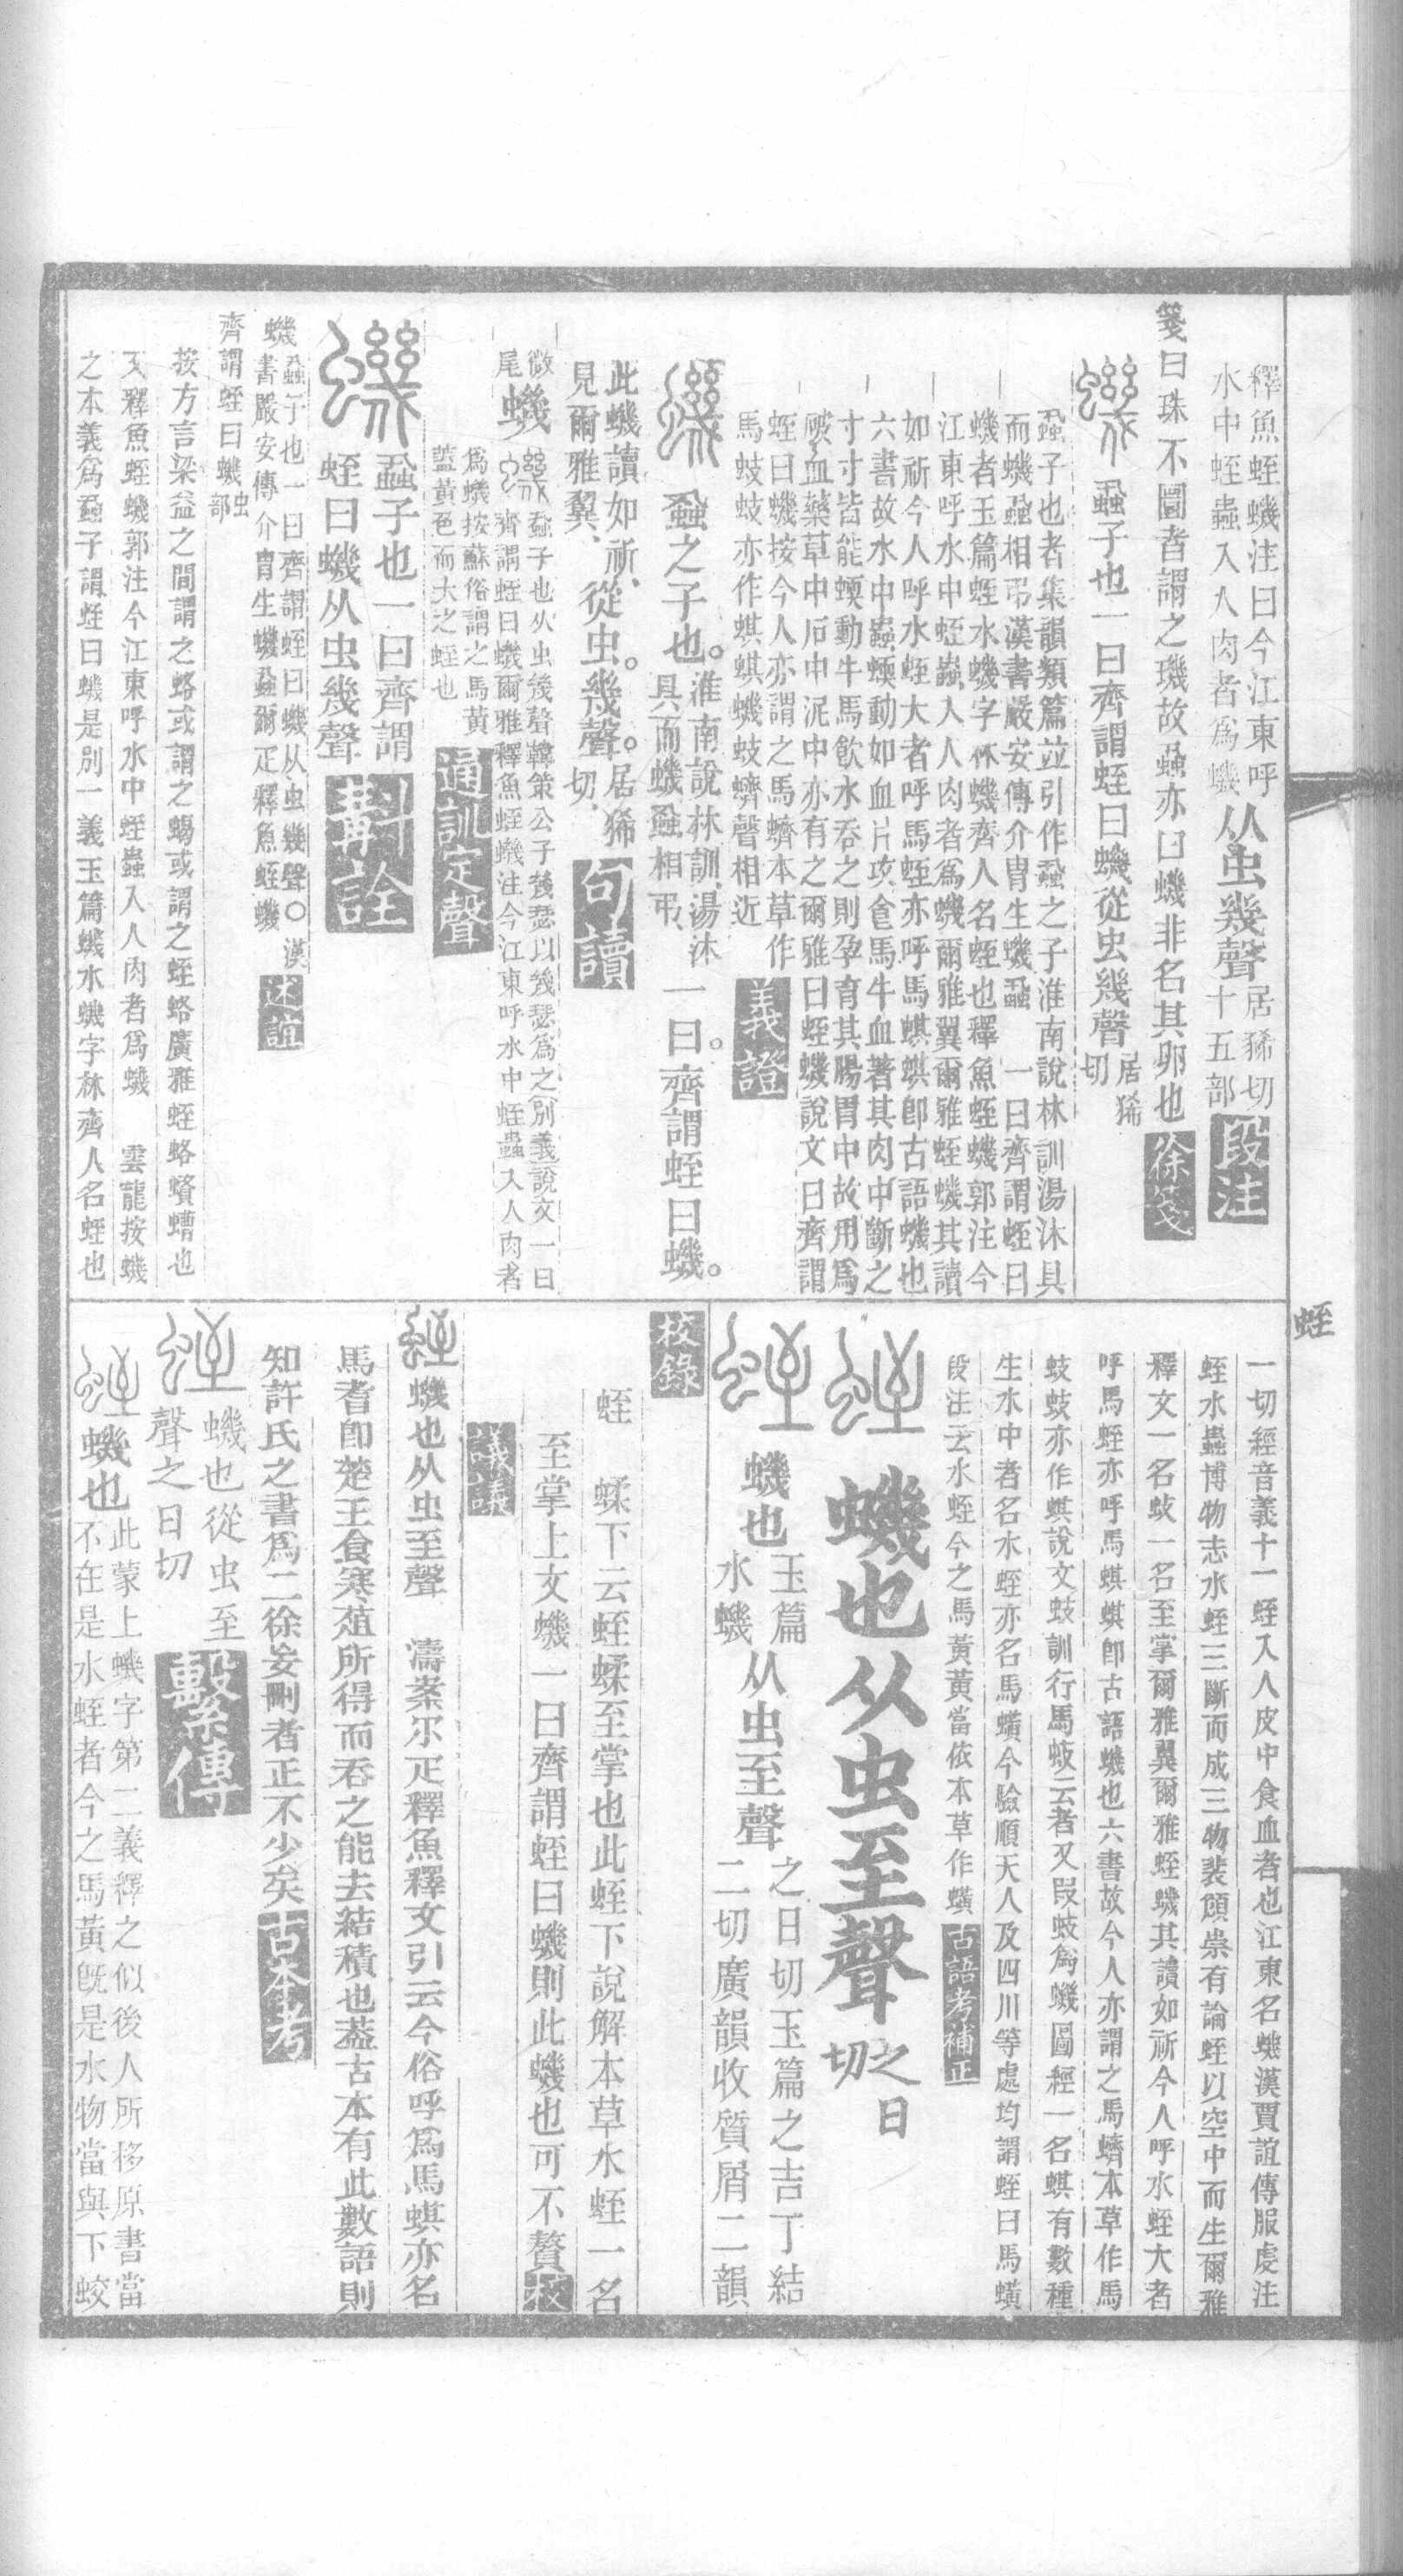 釋魚蛭蟣注曰今江東呼
水中蛭蟲入人肉者爲蟣
从虫幾聲
居狶切
十五部
段注
箋曰珠不圜者謂之璣故蝨亦曰蟣非名其卵也
徐箋
蝨子也一曰齊謂蛭曰蟣從虫幾聲
居狶
切
蝨子也者集韻類篇並引作蝨之子淮南說林訓湯沐具
而蟣蝨相弔漢書嚴安傳介胄生蟣蝨　一曰齊謂蛭曰
蟣者玉篇蛭水蟣字林蟣齊人名蛭也釋魚蛭蟣郭注今
江東呼水中蛭蟲入人肉者爲蟣爾雅翼爾雅蛭蟣其讀
如祈今人呼水蛭大者呼馬蛭亦呼馬蜞蜞卽古語蟣也
六書故水中蟲蝡動如血片攻食馬牛血著其肉中斷之
寸寸皆能蝡動牛馬飲水吞之則孕育其腸胃中故用爲
破血藥草中石中泥中亦有之爾雅曰蛭蟣說文曰齊謂
蛭曰蟣按今人亦謂之馬蠐本草作
馬蚑蚑亦作蜞蜞蟣蚑蠐聲相近
義證
蝨之子也。
淮南說林訓、湯沐
具而蟣蝨相弔、
一曰。齊謂蛭曰蟣。
此蟣讀如祈、
見爾雅翼、
從虫。幾聲。
居狶
切、
句讀
微
尾
蟣
蝨子也从虫幾聲韓策公子蟣瑟以幾瑟爲之別義說文一曰
齊謂蛭曰蟣爾雅釋魚蛭蟣注今江東呼水中蛭蟲入人肉者
爲蟣按蘇俗謂之馬黃
蓋黃色而大之蛭也
通訓定聲
蝨子也一曰齊謂
蛭曰蟣从虫幾聲
斠詮
蟣
蝨子也一曰齊謂蛭曰蟣从虫幾聲○漢
書嚴安傳介胄生蟣蝨爾疋釋魚蛭蟣
述誼
齊謂蛭曰蟣
虫
部
按方言梁益之間謂之蛒或謂之蝎或謂之蛭蛒廣雅蛭蛒蠀螬也
又釋魚蛭蟣郭注今江東呼水中蛭蟲入人肉者爲蟣　雲龍按蟣
之本義爲蝨子謂蛭曰蟣是別一義玉篇蟣水蟣字林齊人名蛭也
蛭
一切經音義十一蛭入人皮中食血者也江東名蟣漢賈誼傳服虔注
蛭水蟲博物志水蛭三斷而成三物裴頠崇有論蛭以空中而生爾雅
釋文一名蚑一名至掌爾雅翼爾雅蛭蟣其讀如祈今人呼水蛭大者
呼馬蛭亦呼馬蜞蜞卽古語蟣也六書故今人亦謂之馬蠐本草作馬
蚑蚑亦作蜞說文蚑訓行馬蚑云者又叚蚑爲蟣圖經一名蜞有數種
生水中者名水蛭亦名馬蟥今驗順天人及四川等處均謂蛭曰馬蟥
段注云水蛭今之馬黃黃當依本草作蟥
古語考補正
蟣也从虫至聲
之日
切
蟣也
玉篇
水蟣
从虫至聲
之日切玉篇之吉丁結
二切廣韻收質屑二韻
校錄
蛭　蝚下云蛭蝚至掌也此蛭下說解本草水蛭一名
至掌上文蟣一曰齊謂蛭曰蟣則此蟣也可不贅
校
議議
蟣也从虫至聲　濤案尔疋釋魚釋文引云今俗呼爲馬蜞亦名
馬耆卽楚王食寒葅所得而吞之能去結積也葢古本有此數語則
知許氏之書爲二徐妄刪者正不少矣
古本考
蟣也從虫至
聲之日切
繫傳
蟣也
此蒙上蟣字第二義釋之似後人所移原書當
不在是水蛭者今之馬黃旣是水物當與下蛟